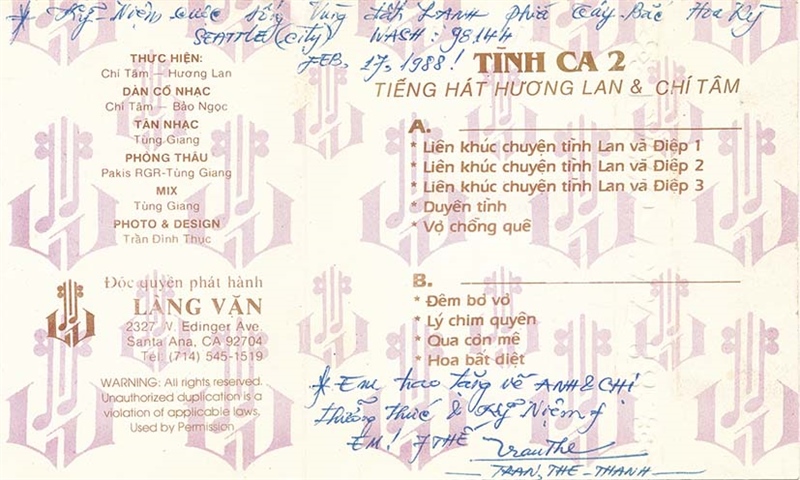 * Kỷ-Niệm cuộc sống Vùng đất LẠNH phiá Tây-Bắc Hoa Kỳ
SEATTLE (City) WASH: 98144
FEB, 17, 1988!
THỰC HIỆN:
Chí Tâm — Hương Lan
DÀN CỔ NHẠC
Chí Tâm — Bảo Ngọc
TÂN NHẠC
Tùng Giang
PHÒNG THÂU
Pakis RGR-Tùng Giang
MIX
Tùng Giang
PHOTO & DESIGN
Trần Đình Thục
Độc quyền phát hành
LÀNG VĂN
2327 W. Edinger Ave.
Santa Ana, CA 92704
Tél: (714) 545-1519
WARNING: All rights reserved.
Unauthorized duplication is a
violation of applicable laws.
Used by Permission
TÌNH CA 2
TIẾNG HÁT HƯƠNG LAN & CHÍ TÂM
A.
* Liên khúc chuyện tình Lan và Điệp 1
* Liên khúc chuyện tình Lan và Điệp 2
* Liên khúc chuyện tình Lan và Điệp 3
* Duyên tình
* Vợ chồng quê
B.
* Đêm bơ vơ
* Lý chim quyên
* Qua cơn mê
* Hoa bất diệt
* Em trao tặng về ANH & CHỊ
thưởng thức & Kỷ Niệm
EM! 7 THẾ
TRAN, THE-THANH